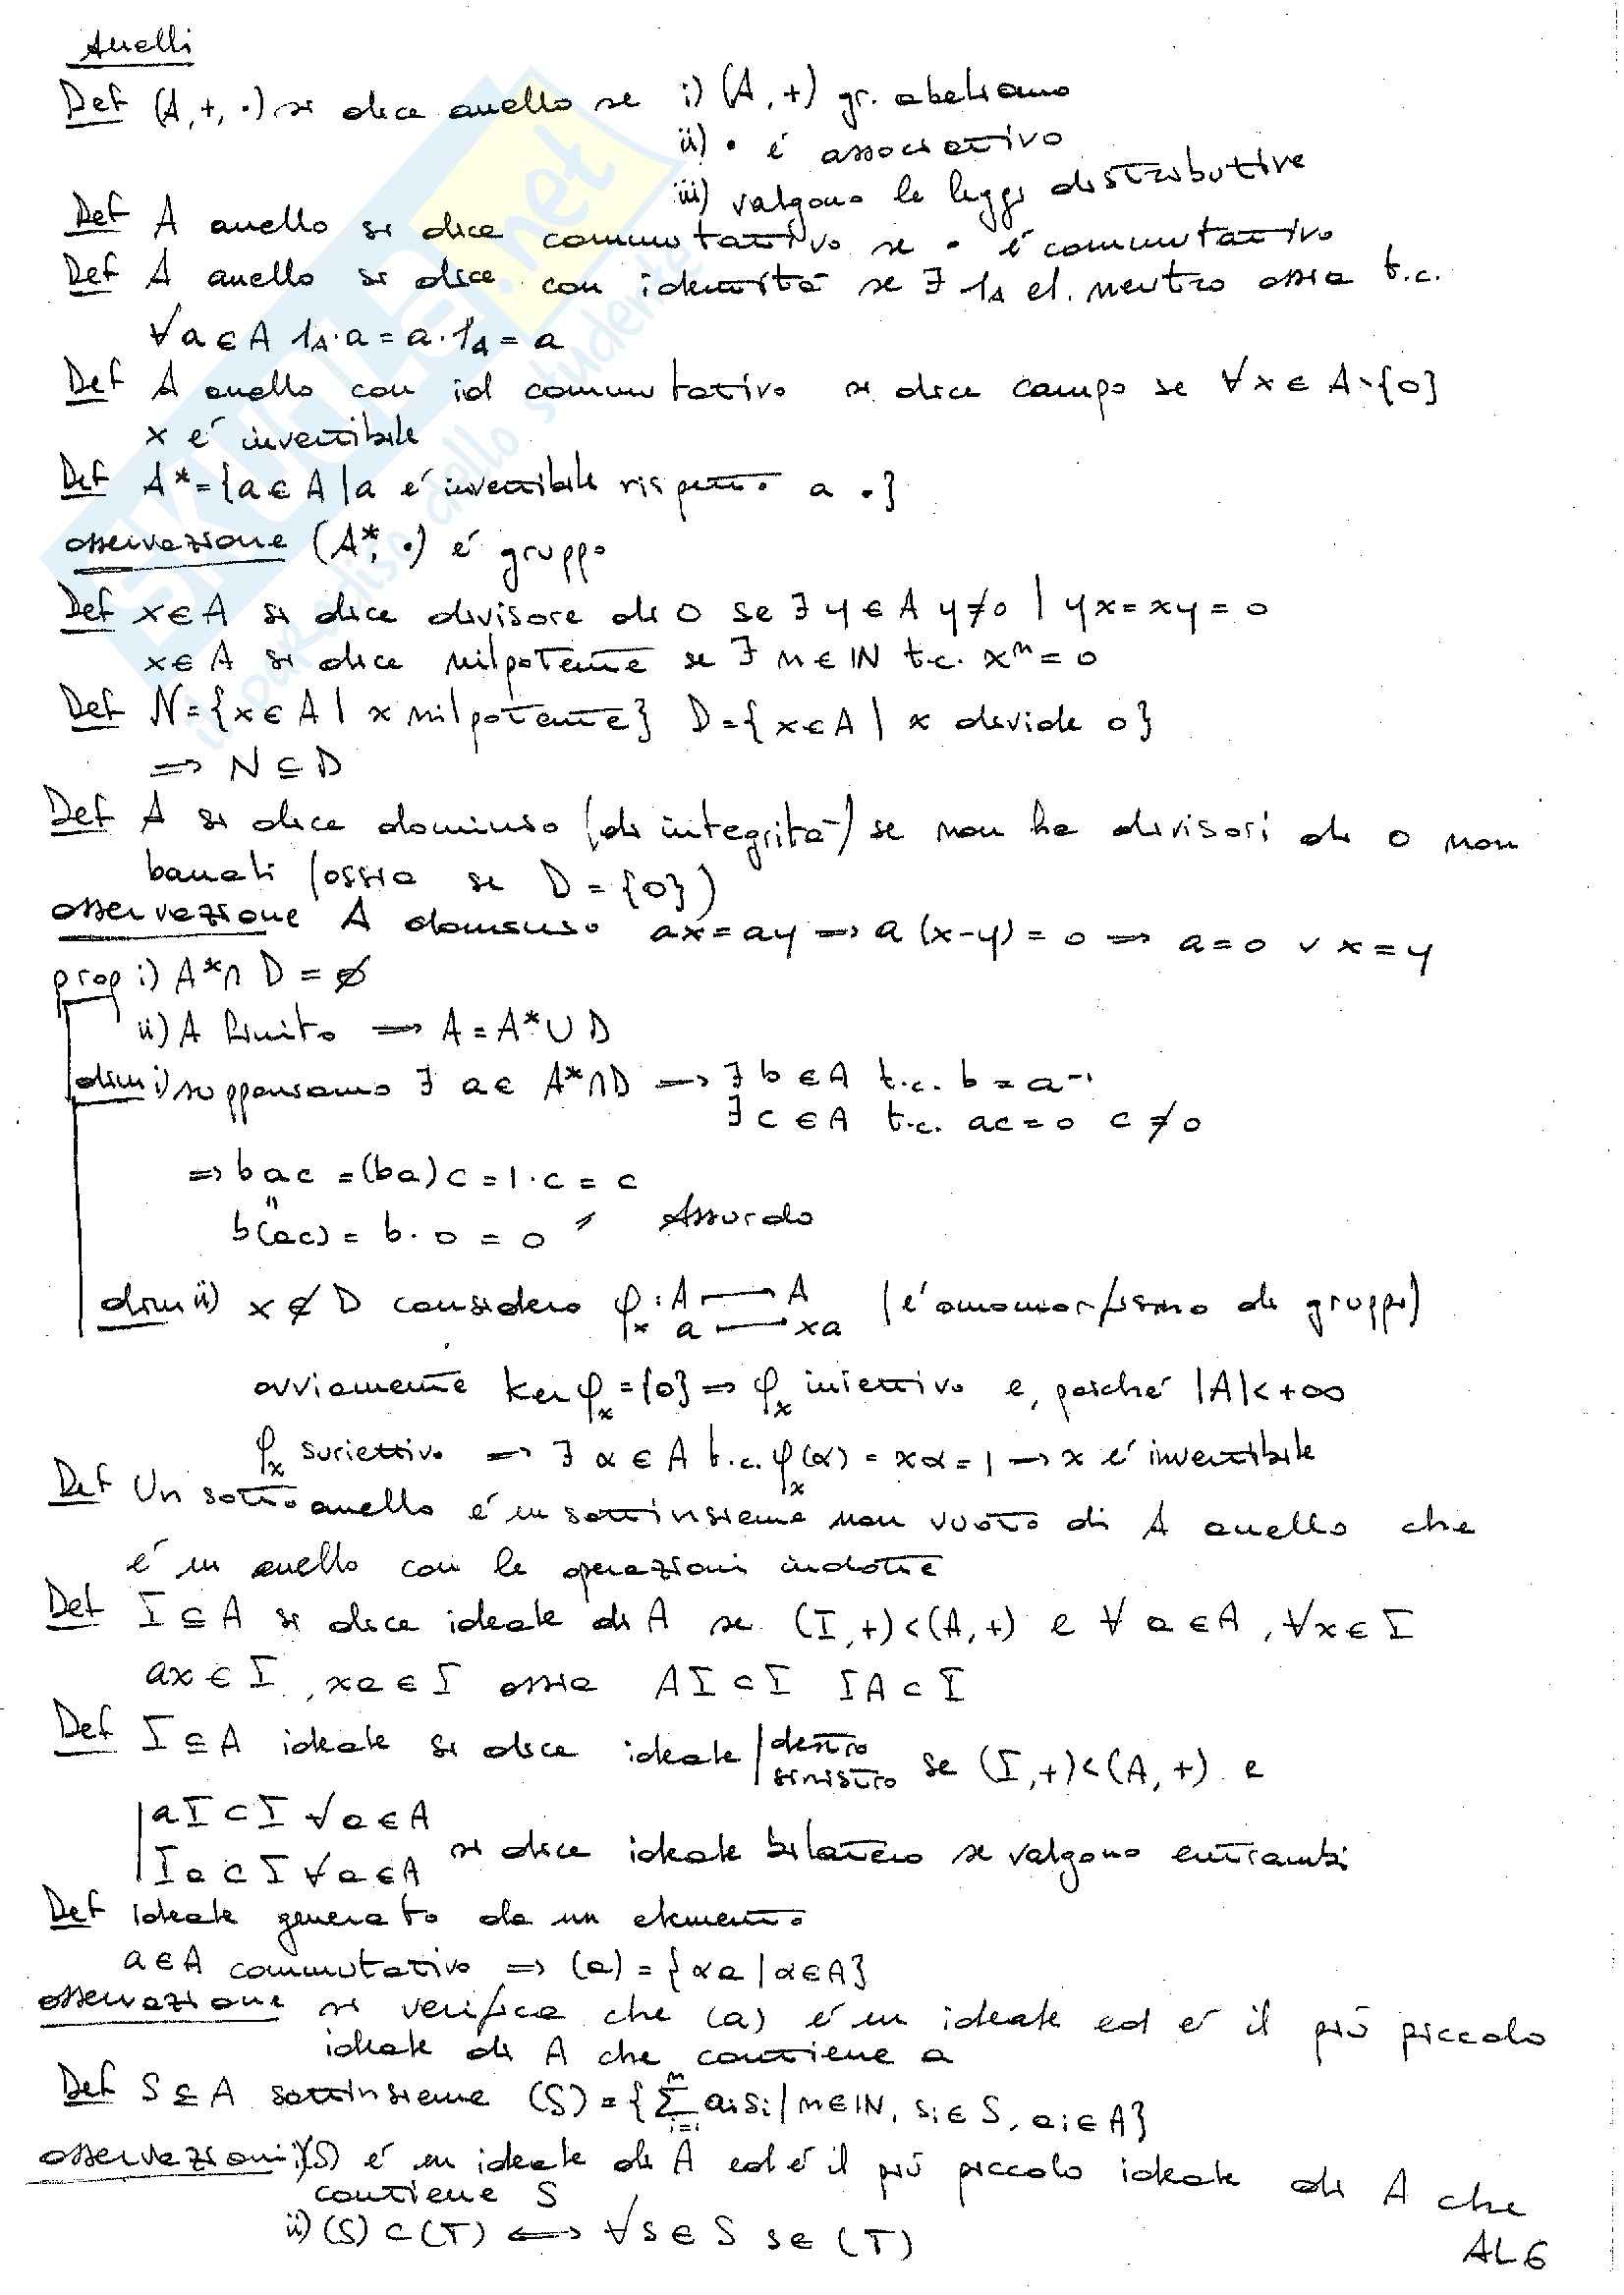 Anelli
Def (A,+,·) si dice anello se i) (A,+) gr. abeliano
ii) · é associativo
iii) valgono le leggi distributive
Def A anello si dice commutativo se · é commutativo
Def A anello si dice con identità se ∃ 1_A el. neutro ossia t.c.
∀a∈A 1_A·a = a·1_A = a
Def A anello con id commutativo si dice campo se ∀x∈A∖{0}
x é invertibile
Def A* = {a∈A | a é invertibile rispetto a ·}
osservazione (A*, ·) é gruppo
Def x∈A si dice divisore di 0 se ∃y∈A y≠0 | yx=xy=0
x∈A si dice nilpotente se ∃ n∈ℕ t.c. xⁿ=0
Def N={x∈A | x nilpotente} D={x∈A | x divide 0}
⇒ N⊆D
Def A si dice dominio (di integrità) se non ha divisori di 0 non
banali (ossia se D={0})
osservazione A dominio ax=ay ⇒ a(x-y)=0 ⇒ a=0 ∨ x=y
prop i) A*∩D=∅
ii) A finito ⇒ A=A*∪D
dim i) supponiamo ∃ a∈A*∩D ⇒ ∃b∈A t.c. b=a⁻¹
∃c∈A t.c. ac=0 c≠0
⇒ bac = (ba)c = 1·c = c
"
b(ac) = b·0 = 0 Assurdo
dim ii) x∉D considero φ_x : A → A (é omomorfismo di gruppi)
a ↦ xa
ovviamente ker φ_x={0} ⇒ φ_x iniettivo e, poiché |A|<+∞
φ_x suriettivo ⇒ ∃ α∈A t.c. φ_x(α) = xα=1 ⇒ x é invertibile
Def Un sottoanello é un sottinsieme non vuoto di A anello che
é un anello con le operazioni indotte
Def I⊆A si dice ideale di A se (I,+)<(A,+) e ∀a∈A, ∀x∈I
ax∈I, xa∈I ossia AI⊂I IA⊂I
Def I⊆A ideale si dice ideale | destro
sinistro se (I,+)<(A,+) e
| aI⊂I ∀a∈A
Ia⊂I ∀a∈A si dice ideale bilatero se valgono entrambi
Def ideale generato da un elemento
a∈A commutativo ⇒ (a)={αa | α∈A}
osservazione si verifica che (a) é un ideale ed é il più piccolo
ideale di A che contiene a
Def S⊆A sottinsieme (S)={∑_{i=1}^{n} aᵢsᵢ | n∈ℕ, sᵢ∈S, aᵢ∈A}
osservazioni i) (S) é un ideale di A ed é il più piccolo ideale di A che
contiene S
ii) (S)⊂(T) ⇔ ∀s∈S s∈(T)
AL6
SKUOLA.net
il paradiso dello studente